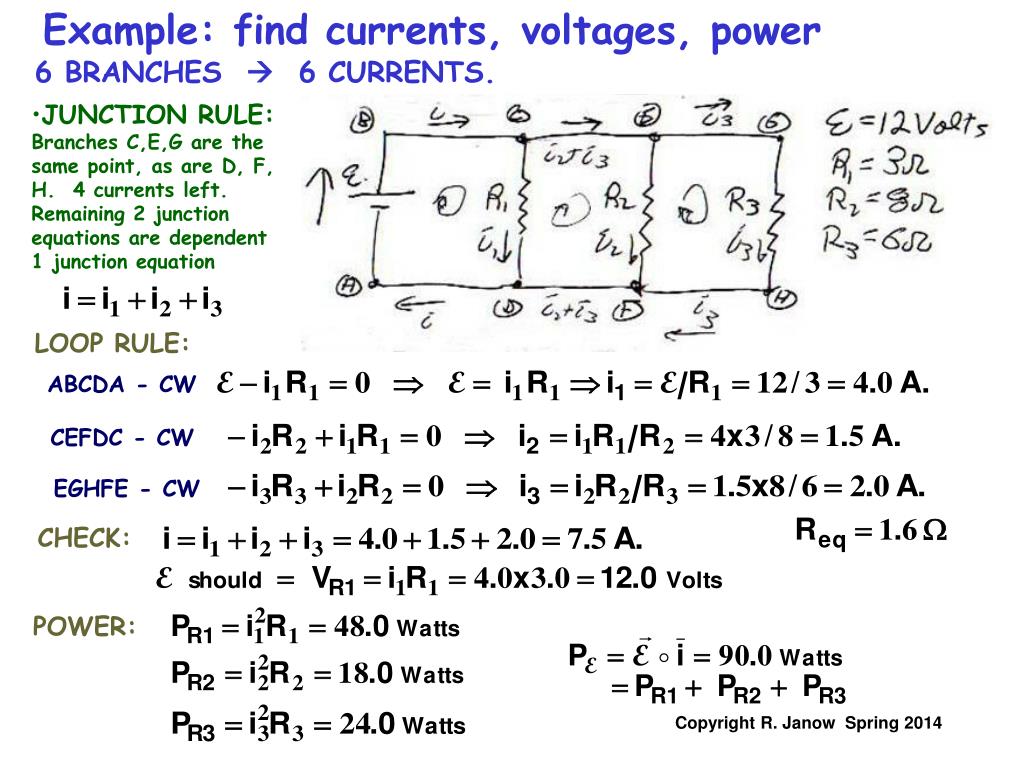 Example: find currents, voltages, power
6 BRANCHES → 6 CURRENTS.
•JUNCTION RULE:
Branches C,E,G are the
same point, as are D, F,
H. 4 currents left.
Remaining 2 junction
equations are dependent
1 junction equation
i = i₁ + i₂ + i₃
B i → C → E i₃ → G
i₂+i₃
ℰ R₁ R₂ R₃
i₁ i₂ i₃
A i D i₂+i₃ F i₃ H
ℰ = 12 Volts
R₁ = 3Ω
R₂ = 8Ω
R₃ = 6Ω
LOOP RULE:
ABCDA - CW ℰ − i₁R₁ = 0 ⇒ ℰ = i₁R₁ ⇒ i₁ = ℰ/R₁ = 12/3 = 4.0 A.
CEFDC - CW − i₂R₂ + i₁R₁ = 0 ⇒ i₂ = i₁R₁/R₂ = 4x3/8 = 1.5 A.
EGHFE - CW − i₃R₃ + i₂R₂ = 0 ⇒ i₃ = i₂R₂/R₃ = 1.5x8/6 = 2.0 A.
CHECK: i = i₁ + i₂ + i₃ = 4.0 + 1.5 + 2.0 = 7.5 A.
R_eq = 1.6 Ω
ℰ should = V_R1 = i₁R₁ = 4.0x3.0 = 12.0 Volts
POWER: P_R1 = i₁²R₁ = 48.0 Watts
P_R2 = i₂²R₂ = 18.0 Watts
P_R3 = i₃²R₃ = 24.0 Watts
P_ℰ = ℰ⃗ ∘ i̅ = 90.0 Watts
= P_R1 + P_R2 + P_R3
Copyright R. Janow Spring 2014